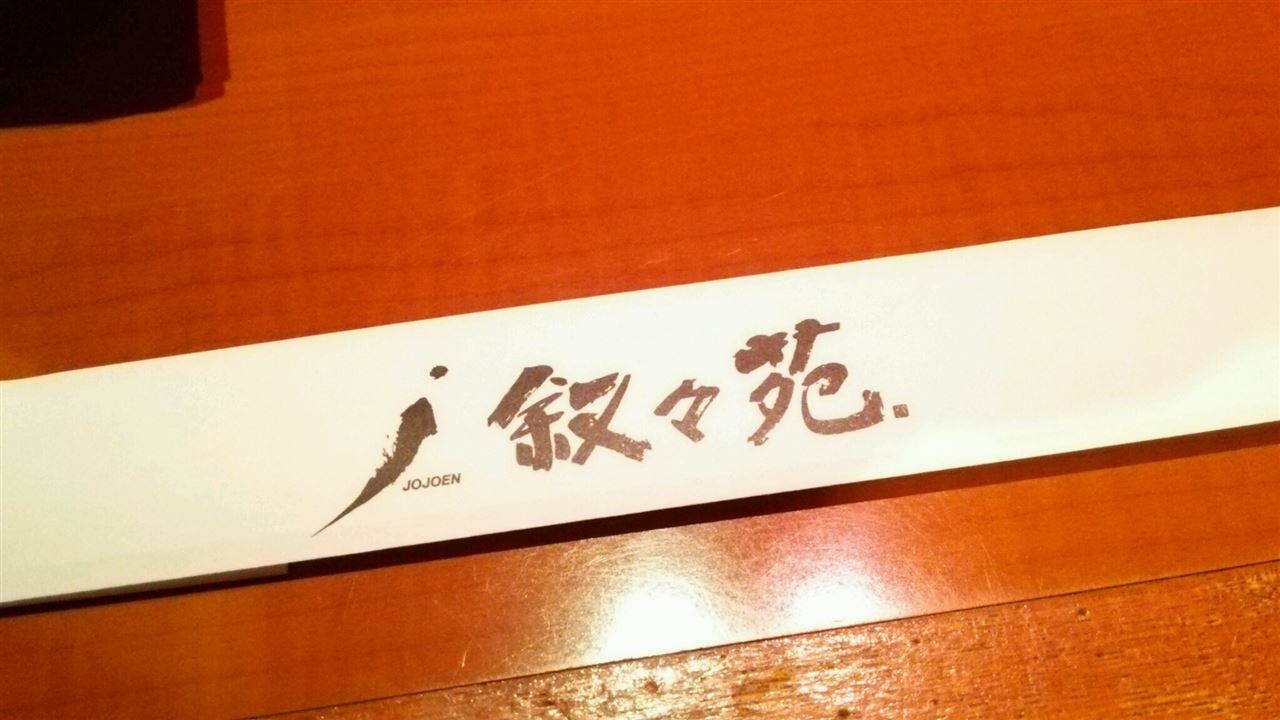 j 叙々苑.
JOJOEN